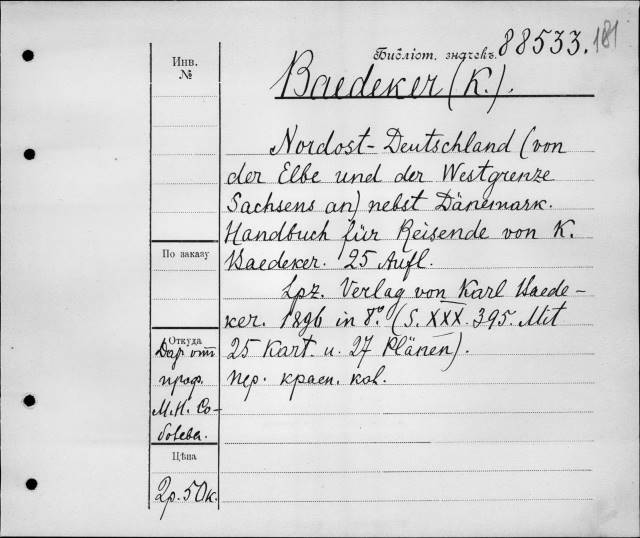 Библіот. значекъ. 88533. 181
Инв.
№
Baedeker (K.).
Nordost-Deutschland (von
der Elbe und der Westgrenze
Sachsens an) nebst Dänemark.
Handbuch für Reisende von K.
Baedeker. 25 Aufl.
Lpz. Verlag von Karl Baede-
ker. 1896 in 8°. (S. XXX. 395. Mit
25 Kart. u. 27 Plänen).
пер. красн. кол.
По заказу
Откуда
Дар от
проф.
М.Н. Со-
болева.
Цѣна
2р. 50к.